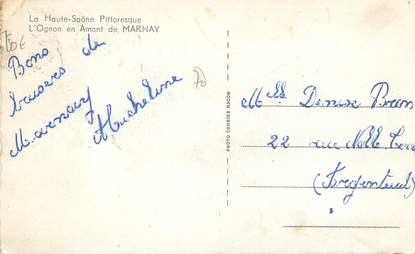 La Haute-Saône Pittoresque
L'Ognon en Amont de MARNAY
Bons
baisers de
Marnay
Micheline
70
PHOTO COURTES NACOR
Melle Denise
22 rue
(Argenteuil)